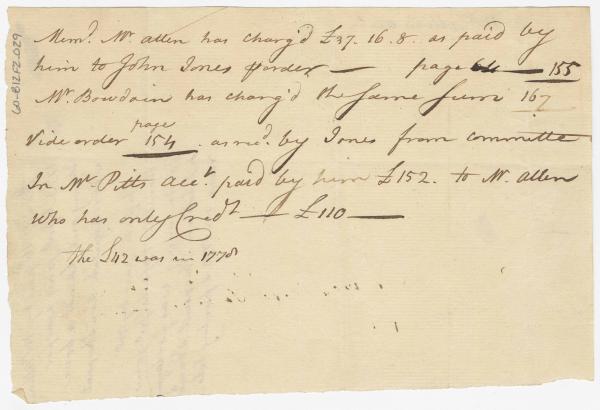 Mem.d Mr. Allen has charg'd £37. 16. 8. as paid by
him to John Jones pr order — page 64 — 155
Mr. Bowdoin has charg'd the same sum 167
page
Vide order 154 . as rec.d by Jones from committe
In Mr. Pitts Acc.t paid by him £152. to Mr. Allen
who has only Cred.t — £110 —
the £42 was in 1778
60-812F2-029